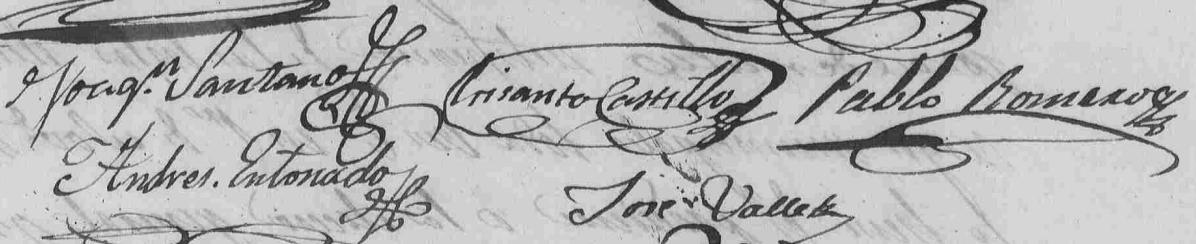 Joaqn. Santano Crisanto Castillo Pablo Romero
Andres. Entonado Jose Valle